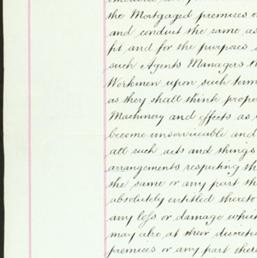 the Mortgaged premises
and conduct the same as
fit and for the purpose
such Agents Managers
Workmen upon such terms
as they shall think proper
Machinery and effects as
become unserviceable and
all such acts and things
arrangements respecting the
the same or any part th
absolutely entitled thereto
any loss or damage which
may also at their discretion
premises or any part there